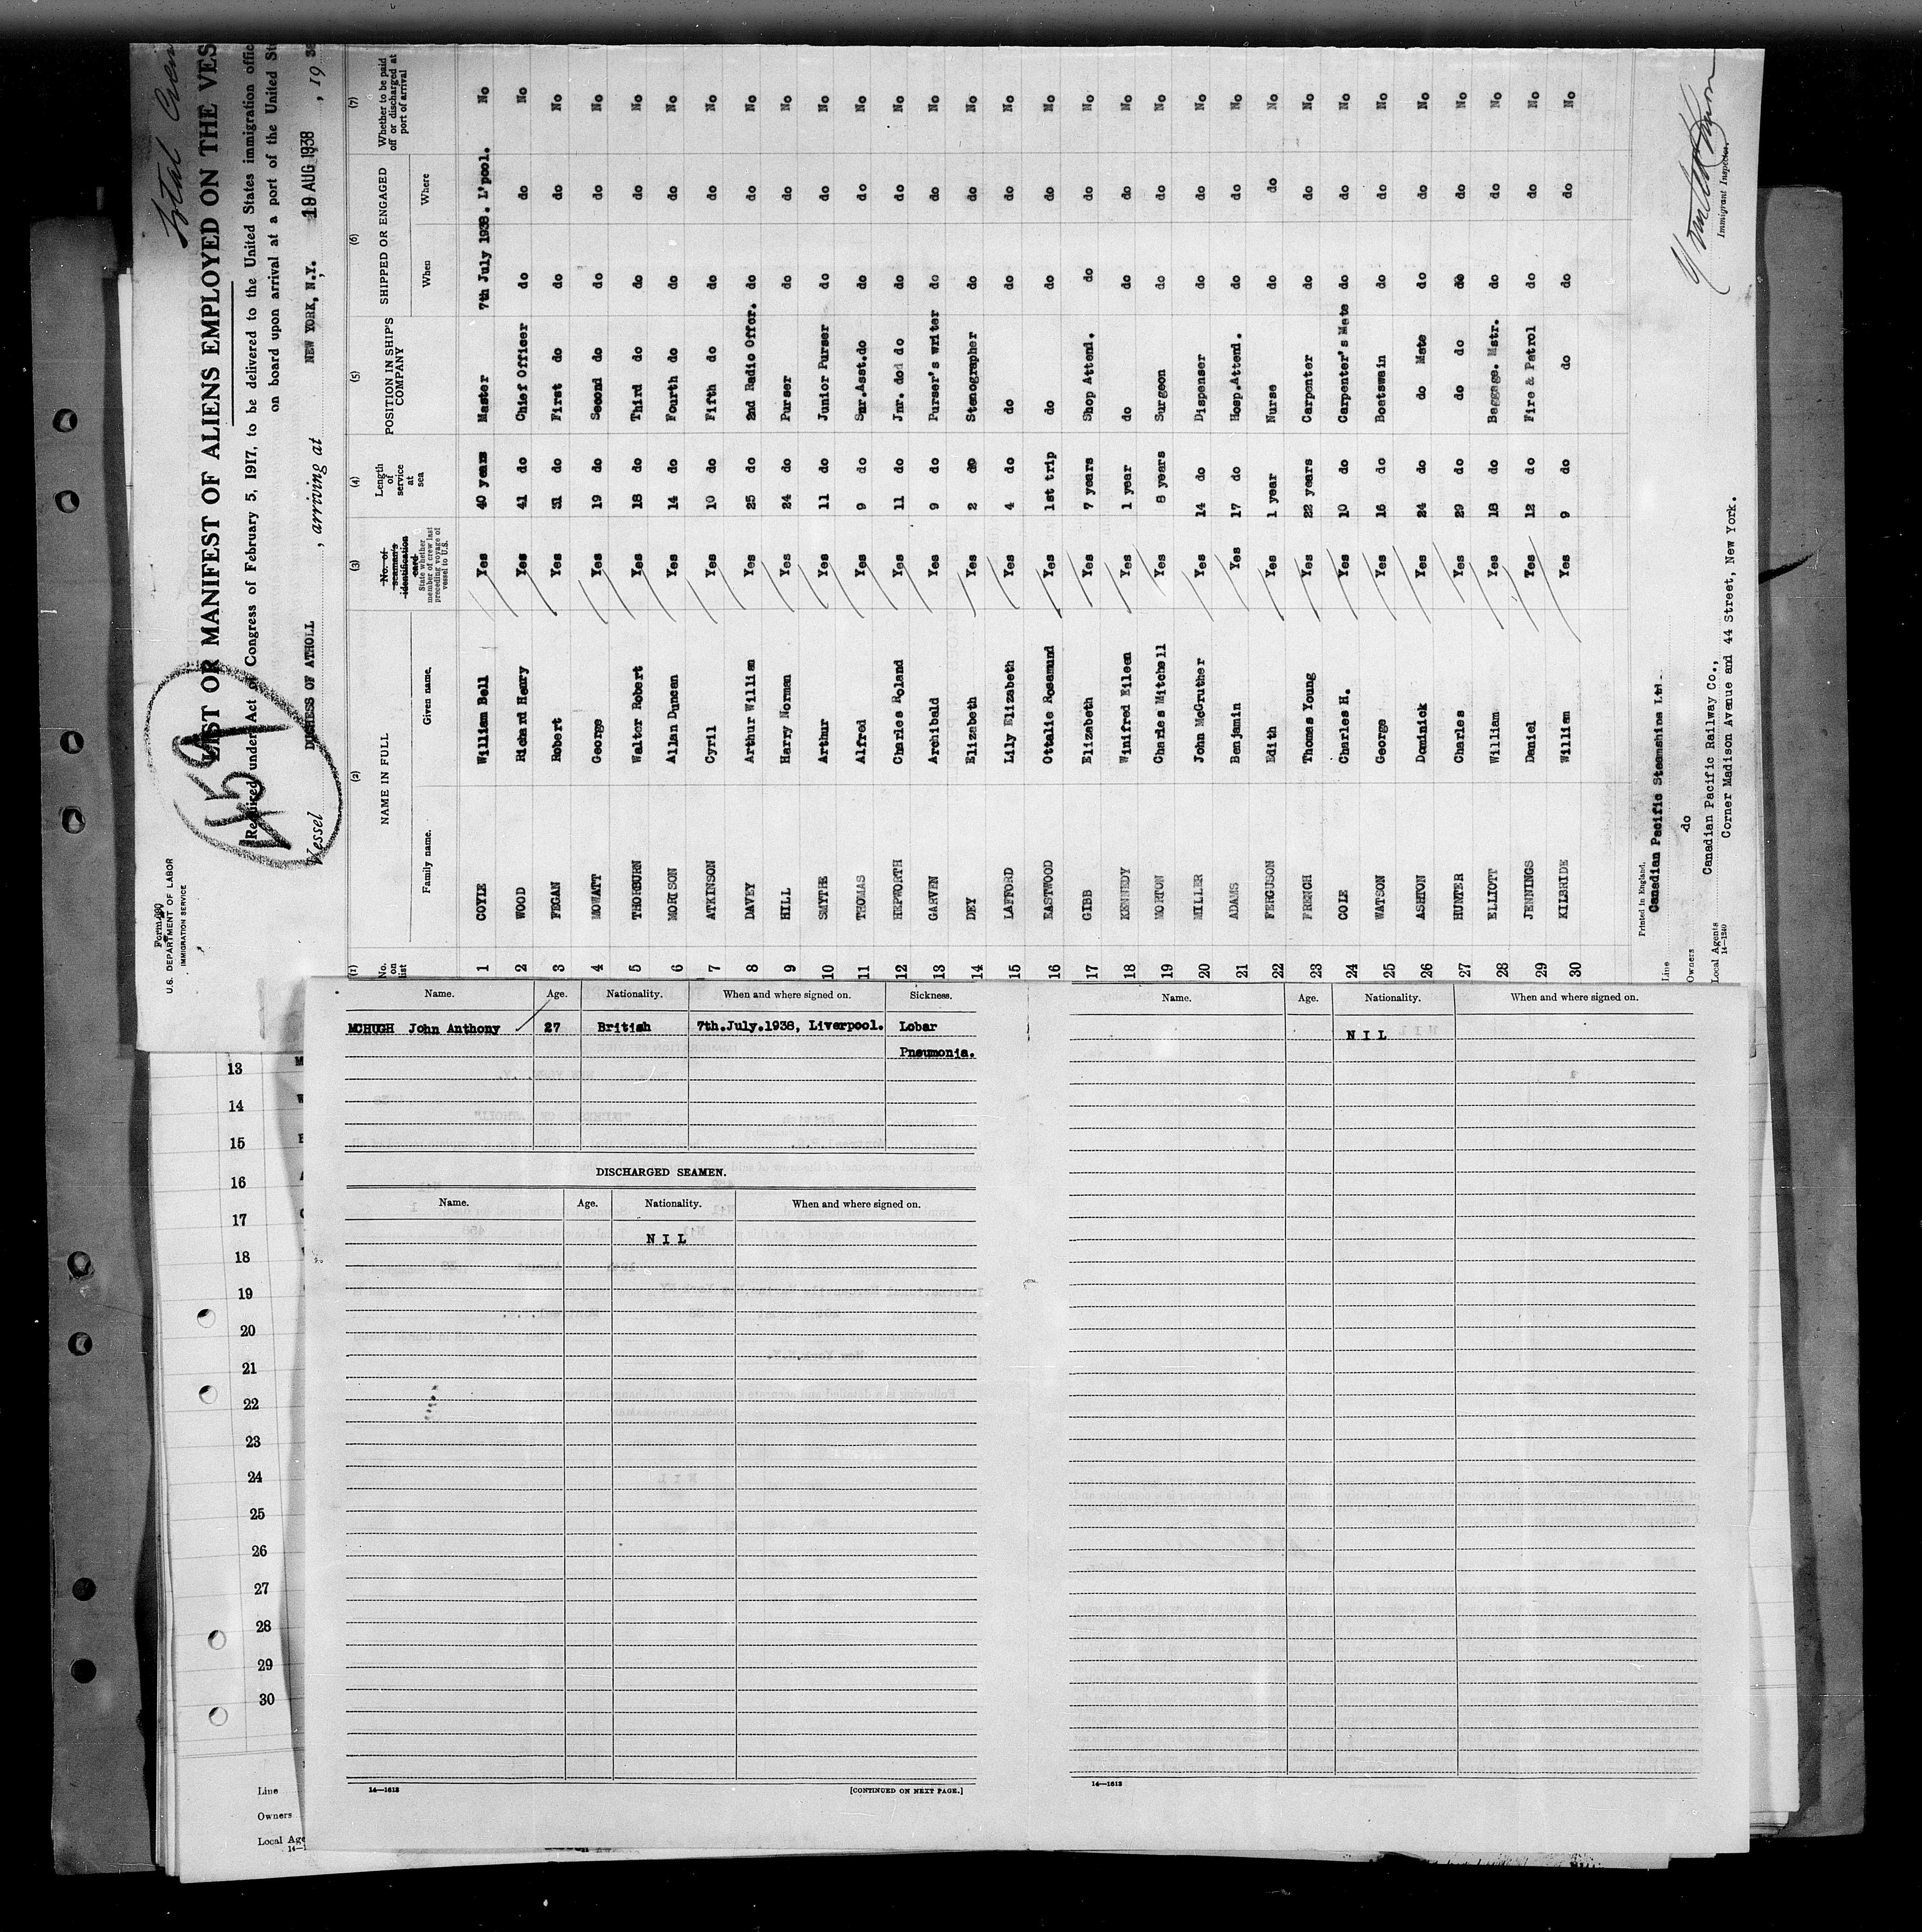 Total Crew
Form 680
U.S. DEPARTMENT OF LABOR
IMMIGRATION SERVICE
459
LIST OR MANIFEST OF ALIENS EMPLOYED ON THE VES
Required under Act of Congress of February 5, 1917, to be delivered to the United States immigration offic
on board upon arrival at a port of the United St
Vessel DUCHESS OF ATHOLL, arriving at NEW YORK, N.Y. 19 AUG 1938, 1938
(1) (2) (3) (4) (5) (6) (7)
No. on list NAME IN FULL Family name. Given name. No. of seaman's identification card State whether member of crew last preceding voyage of vessel to U.S. Length of service at sea POSITION IN SHIP'S COMPANY SHIPPED OR ENGAGED When Where Whether to be paid off or discharged at port of arrival
1 COYLE William Bell Yes 40 years Master 7th July 1938. L'pool. No
2 WOOD Richard Henry Yes 41 do Chief Officer do do No
3 FEGAN Robert Yes 31 do First do do do No
4 MOWATT George Yes 19 do Second do do do No
5 THORBURN Walter Robert Yes 18 do Third do do do No
6 MORISON Allan Duncan Yes 14 do Fourth do do do No
7 ATKINSON Cyril Yes 10 do Fifth do do do No
8 DAVEY Arthur William Yes 25 do 2nd Radio Offcr. do do No
9 HILL Harry Norman Yes 24 do Purser do do No
10 SMYTHE Arthur Yes 11 do Junior Purser do do No
11 THOMAS Alfred Yes 9 do Snr.Asst.do do do No
12 HEPWORTH Charles Roland Yes 11 do Jnr. dod do do do No
13 GARVEN Archibald Yes 9 do Purser's writer do do No
14 DEY Elizabeth Yes 2 do Stenographer do do No
15 LAFFORD Lily Elizabeth Yes 4 do do do do No
16 EASTWOOD Ottalie Rosamund Yes 1st trip do do do No
17 GIBB Elizabeth Yes 7 years Shop Attend. do do No
18 KENNEDY Winifred Eileen Yes 1 year do do do No
19 MORTON Charles Mitchell Yes 8 years Surgeon do do No
20 MILLER John McGruther Yes 14 do Dispenser do do No
21 ADAMS Benjamin Yes 17 do Hosp.Attend. do do No
22 FERGUSON Edith Yes 1 year Nurse do do No
23 FRENCH Thomas Young Yes 22 years Carpenter do do No
24 COLE Charles H. Yes 10 do Carpenter's Mate do do No
25 WATSON George Yes 16 do Boatswain do do No
26 ASHTON Dominick Yes 24 do do Mate do do No
27 HUNTER Charles Yes 29 do do do do do No
28 ELLIOTT William Yes 18 do Baggage. Mstr. do do No
29 JENNINGS Daniel Yes 12 do Fire & Patrol do do No
30 KILBRIDE William Yes 9 do do do do No
Printed in England.
Line Canadian Pacific Steamships Ltd.
Owners do
Local Agents Canadian Pacific Railway Co.,
14-1240 Corner Madison Avenue and 44 Street, New York.
Immigrant Inspector.
Name. Age. Nationality. When and where signed on. Sickness.
MCHUGH John Anthony 27 British 7th.July.1938, Liverpool. Lobar
Pneumonia.
DISCHARGED SEAMEN.
Name. Age. Nationality. When and where signed on.
N I L
14—1613 [CONTINUED ON NEXT PAGE.]
Name. Age. Nationality. When and where signed on.
N I L
14—1613
13
14
15
16
17
18
19
20
21
22
23
24
25
26
27
28
29
30
Line
Owners
Local Age
14—1